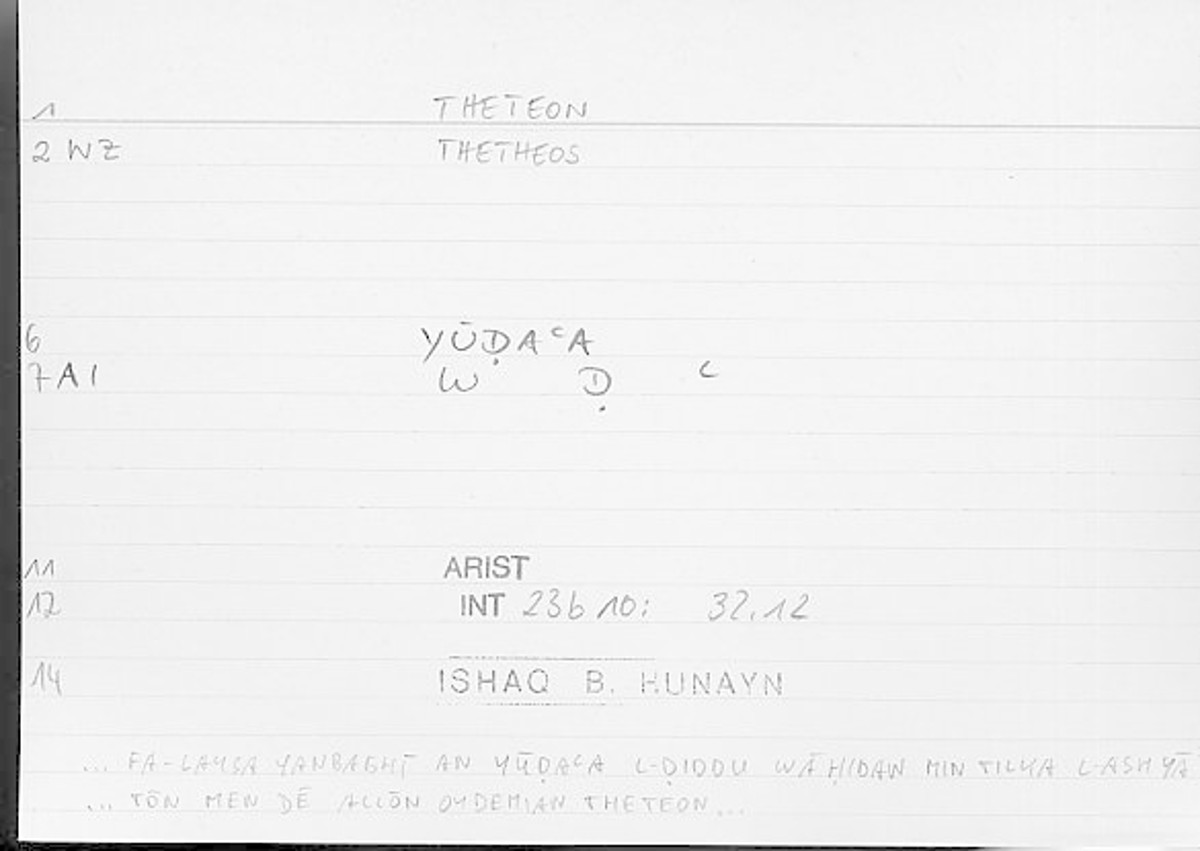 1 THETEON
2 WZ THETHEOS
6 YŪḌAʿA
7 A1 W Ḍ ʿ
11 ARIST
12 INT 23b 10: 32.12
14 ISHAQ B. HUNAYN
... FA-LAYSA YANBAGHĪ AN YŪḌAʿA L-ḌIDDU WĀḤIDAN MIN TILKA L-ASHYĀ
... TŌN MEN DĒ ALLŌN OYDEMIAN THETEON...